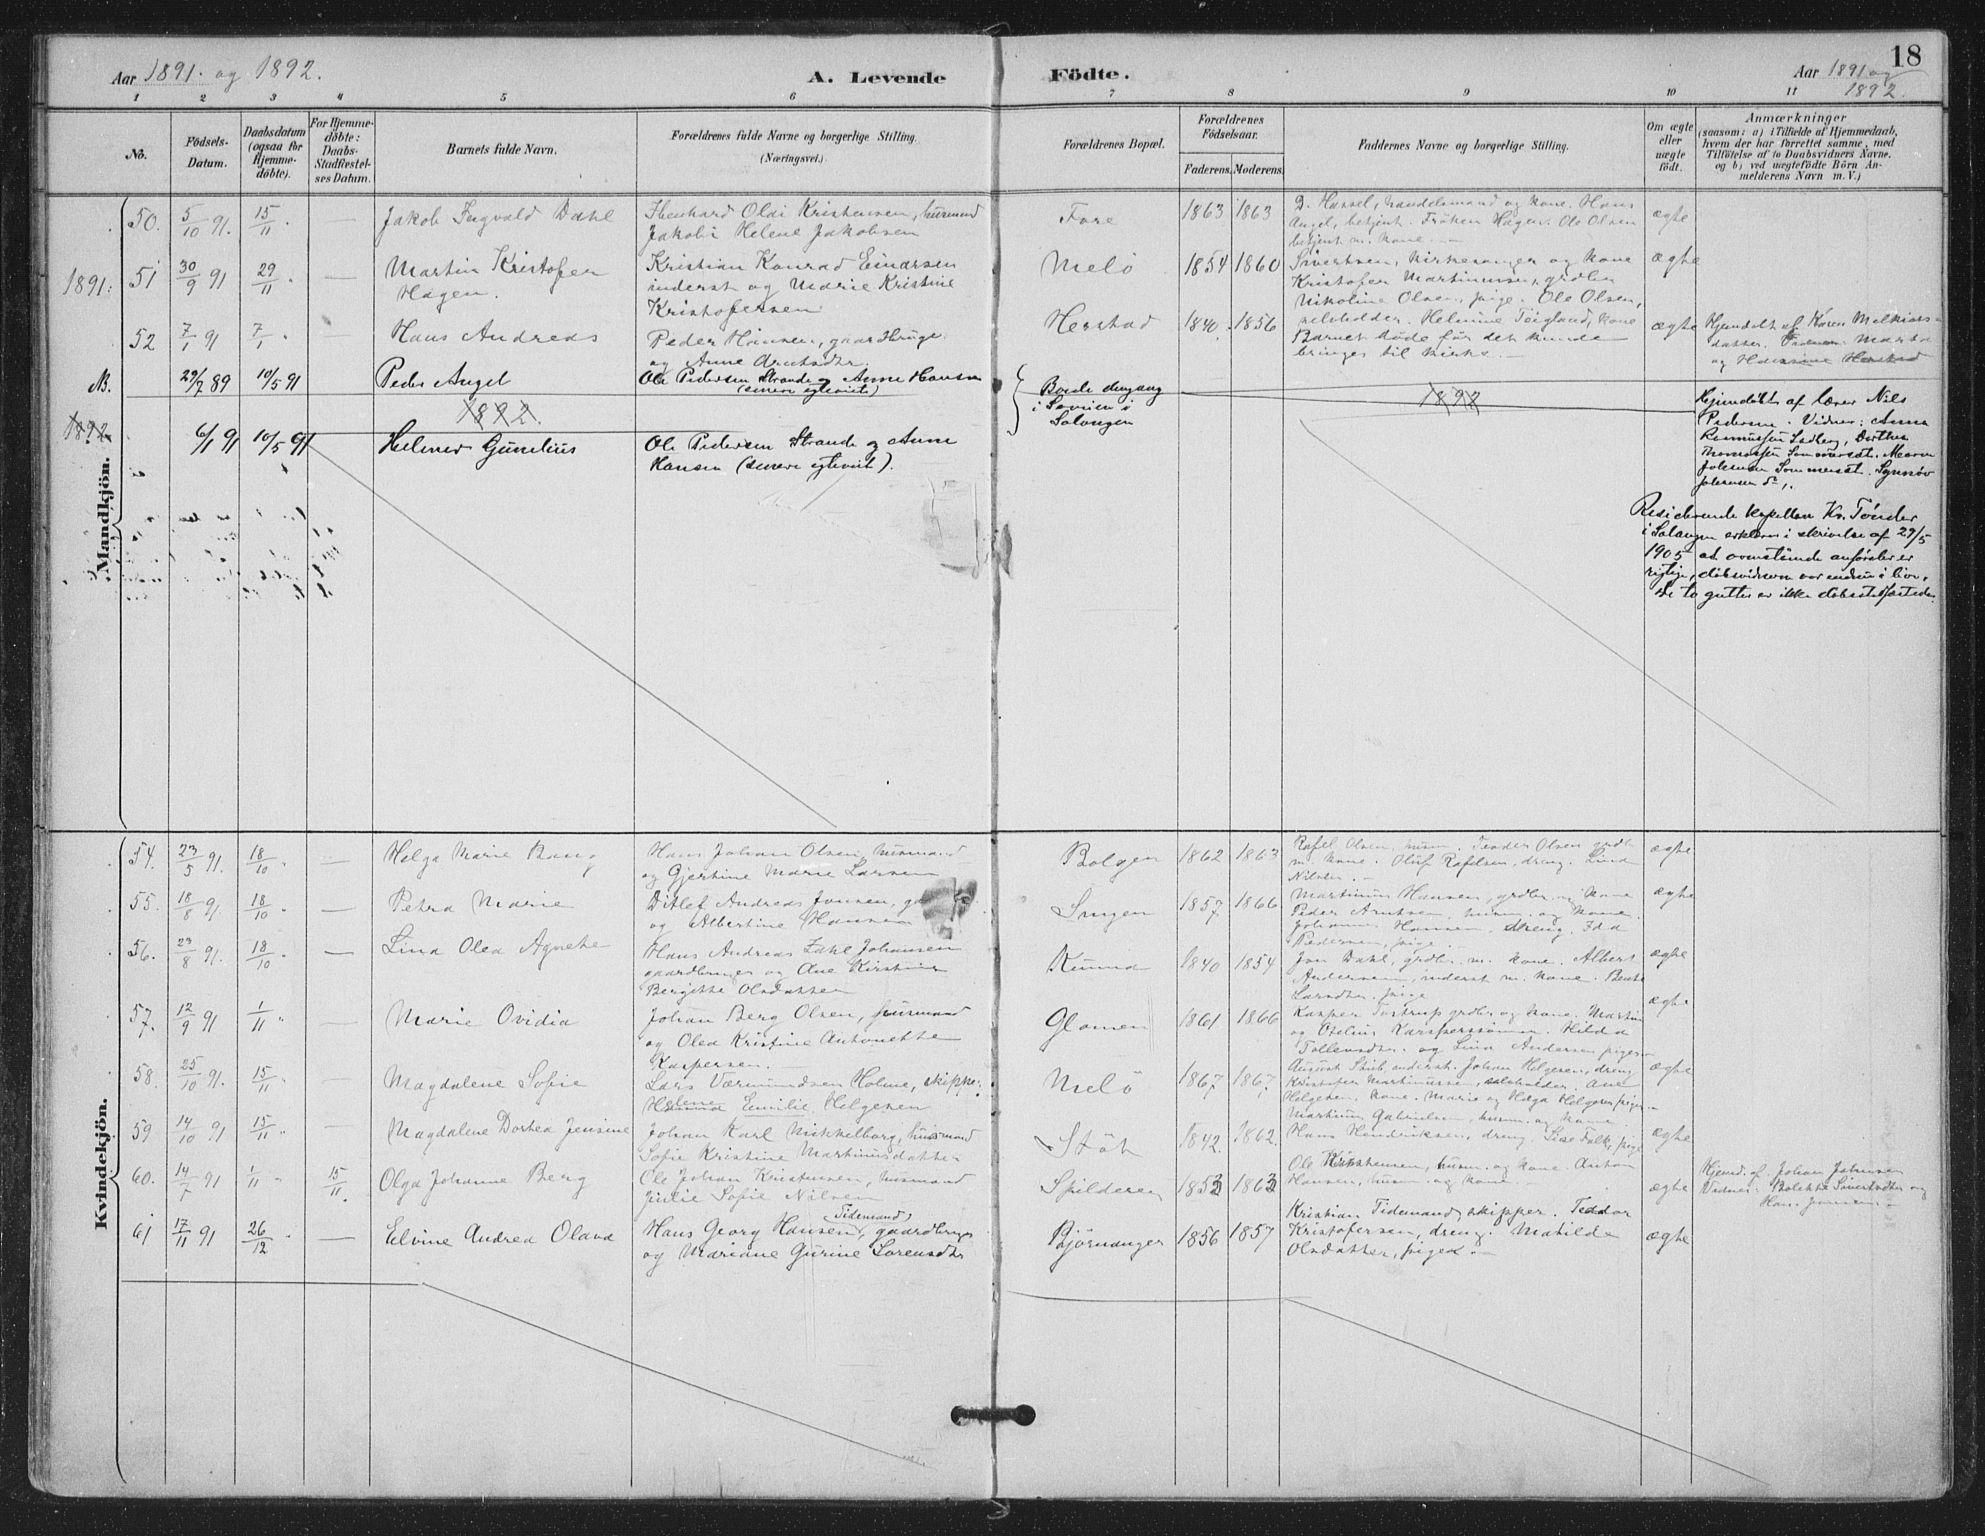 18
Aar 1891. og 1892.
A. Levende Födte.
Aar 1891 og 1892.
1 2 3 4 5 6 7 8 9 10 11
No.
Födsels-Datum.
Daabsdatum (ogsaa for Hjemme-döbte).
For Hjemme-döbte: Daabs-Stadfæstel-ses Datum.
Barnets fulde Navn.
Forældrenes fulde Navne og borgerlige Stilling.
(Næringsvei.)
Forældrenes Bopæl.
Forældrenes Födselsaar.
Faderens. Moderens.
Faddernes Navne og borgerlige Stilling.
Om ægte eller uægte født.
Anmærkninger
(saasom: a) i Tilfælde af Hjemmedaab,
hvem der har forrettet samme, med
Tilföielse af to Daabsvidners Navne,
og b) ved uægtefödte Börn An-
melderens Navn m. V.)
Mandkjön.
1891.
50. 5/10 91. 15/11 — Jakob Ingvald Dahl
Oldi Kristensen, husmand
Jakobi Helene Jakobsen
Fore 1863 1863
D. Hassel, handelsmand og kone. Hans
Angel, betjent. Fröken Hagen. Ole Olsen
betjent m. kone. —
ægte
51 30/9 91 29/11 — Martin Kristofer
Hagen.
Kristian Konrad Einarsen
inderst og Marie Kristine
Kristofersen
Melö 1854 1860
Sivertsen, kirkesanger og kone
Kristofer Martinussen, grdbr.
Nikoline Olsen, pige. Ole Olsen,
ægte
52 7/1 91 7/1 — Hans Andreas
Peder Hansen, gaardbruger
og Anne Arntsdtr.
Herstad 1840. 1856
selveholder. Helmine Teigland, kone
Barnet döde för det kunde
bringes til kirke. —
ægte
Hjemdøbt af Karen Melkiors-
datter. Marta
og
NB. 29/7 89 10/5 91 Peder Angel
Ole Pedersen Strande og Anne Hansen
(senere egteviet)
Boede dengang
i
Salangen
1892
1892.
1892
6/1 91 10/5 91 Helmer Gunelius
Ole Pedersen Strande og Anne
Hansen (senere egteviet).
Hjemdöbt af lærer Nils
Pedersen. Vidner: Anna
Rasmussen Sedberg, Dorthea
Thomassen Sommerset.
Johansen Sommerset. Synnöv
Johansen
Residerende kapellan Kr. Tönder
i Salangen erklærer i skrivelse af 29/5
1905 at ovenstående anförsler er
rigtige, döbsvidnerne var endnu i live.
De to gutter er ikke döbsstadfæstede.
Kvindekjön.
54. 23/5 91. 18/10 — Helga Marie Bang
Hans Johan Olsen, husmand
og Gjertine Marie Larsen
Bolgen 1862 1863
Rafel Olsen, husm. Teodor Olsen grdbr
m. kone. Oluf Rafelsen, dreng. Lina
Nilsen. —
ægte
55. 18/8 91. 18/10 — Petra Marie
Ditlef Andreas Jensen,
og Albertine Hansen
1857 1866
Martinus Hansen, grdbr. og kone
Peder Arntsen, husm. og kone.
Johannes Hansen, dreng. Ida
Pedersen, pige. —
ægte
56. 23/8 91. 18/10 — Lina Olea Agnete
Hans Andreas Zahl Johansen
gaardbruger og Ane Kirstine
Bergitte Olsdatter
Kunna 1840 1854
Jon Dahl, grdbr. m. kone. Albert
Andersen, inderst m. kone. Bente
Larsdtr. pige
ægte
57. 12/9 91 1/11 — Marie Ovidia
Johan Berg Olsen, husmand
og Olea Kristine Antonette
Kaspersen. —
Glomen 1861 1866
Kasper Tostrup grdbr og kone. Martin
og Otelius Kasperssönner. Hilda
Tollevsdtr. og Lina Andersen piger —
ægte
58. 25/10 91. 15/11 — Magdalene Sofie
Lars Værmundsen Holme, skipper
Helene Emilie Helgesen
Melö 1867 1867
August Stub, inderst. Johan Helgesen, dreng
Kristofer Martinussen, selveholder. Ane
Helgesen, kone. Marie og Helga Helgesen piger —
ægte
59 14/10 91 15/11 — Magdalene Dortea Jensine
Johan Karl Mikkelborg, husmand
Sofie Kristine Martinusdatter
Stöt 1842. 1862.
Martinus Gabrielsen, husm. og kone.
Hans Hendriksen, dreng. Lise Falk, pige
ægte
60. 14/7 91 1/11 15/11. Olga Johanne Berg
Ole Johan Kristensen, husmand
Julie Sofie Nilsen
Spilderen 1853 1863
Ole Kristensen, husm. og kone. Anton
Hansen, husm. og kone. —
ægte
Hjemd. af Johan
Vidner: Sivertsdtr og
Hans Jensen. —
61 17/11 91 26/12 — Elvine Andrea Olava
Hans Georg Hansen (Tidemand), gaardbruger
og Mariane Gurine Sörensdtr
Björnanger 1856 1857
Kristian Tidemand, skipper. Teodor
Kristofersen, dreng. Matilde
Olsdatter, pige. —
ægte